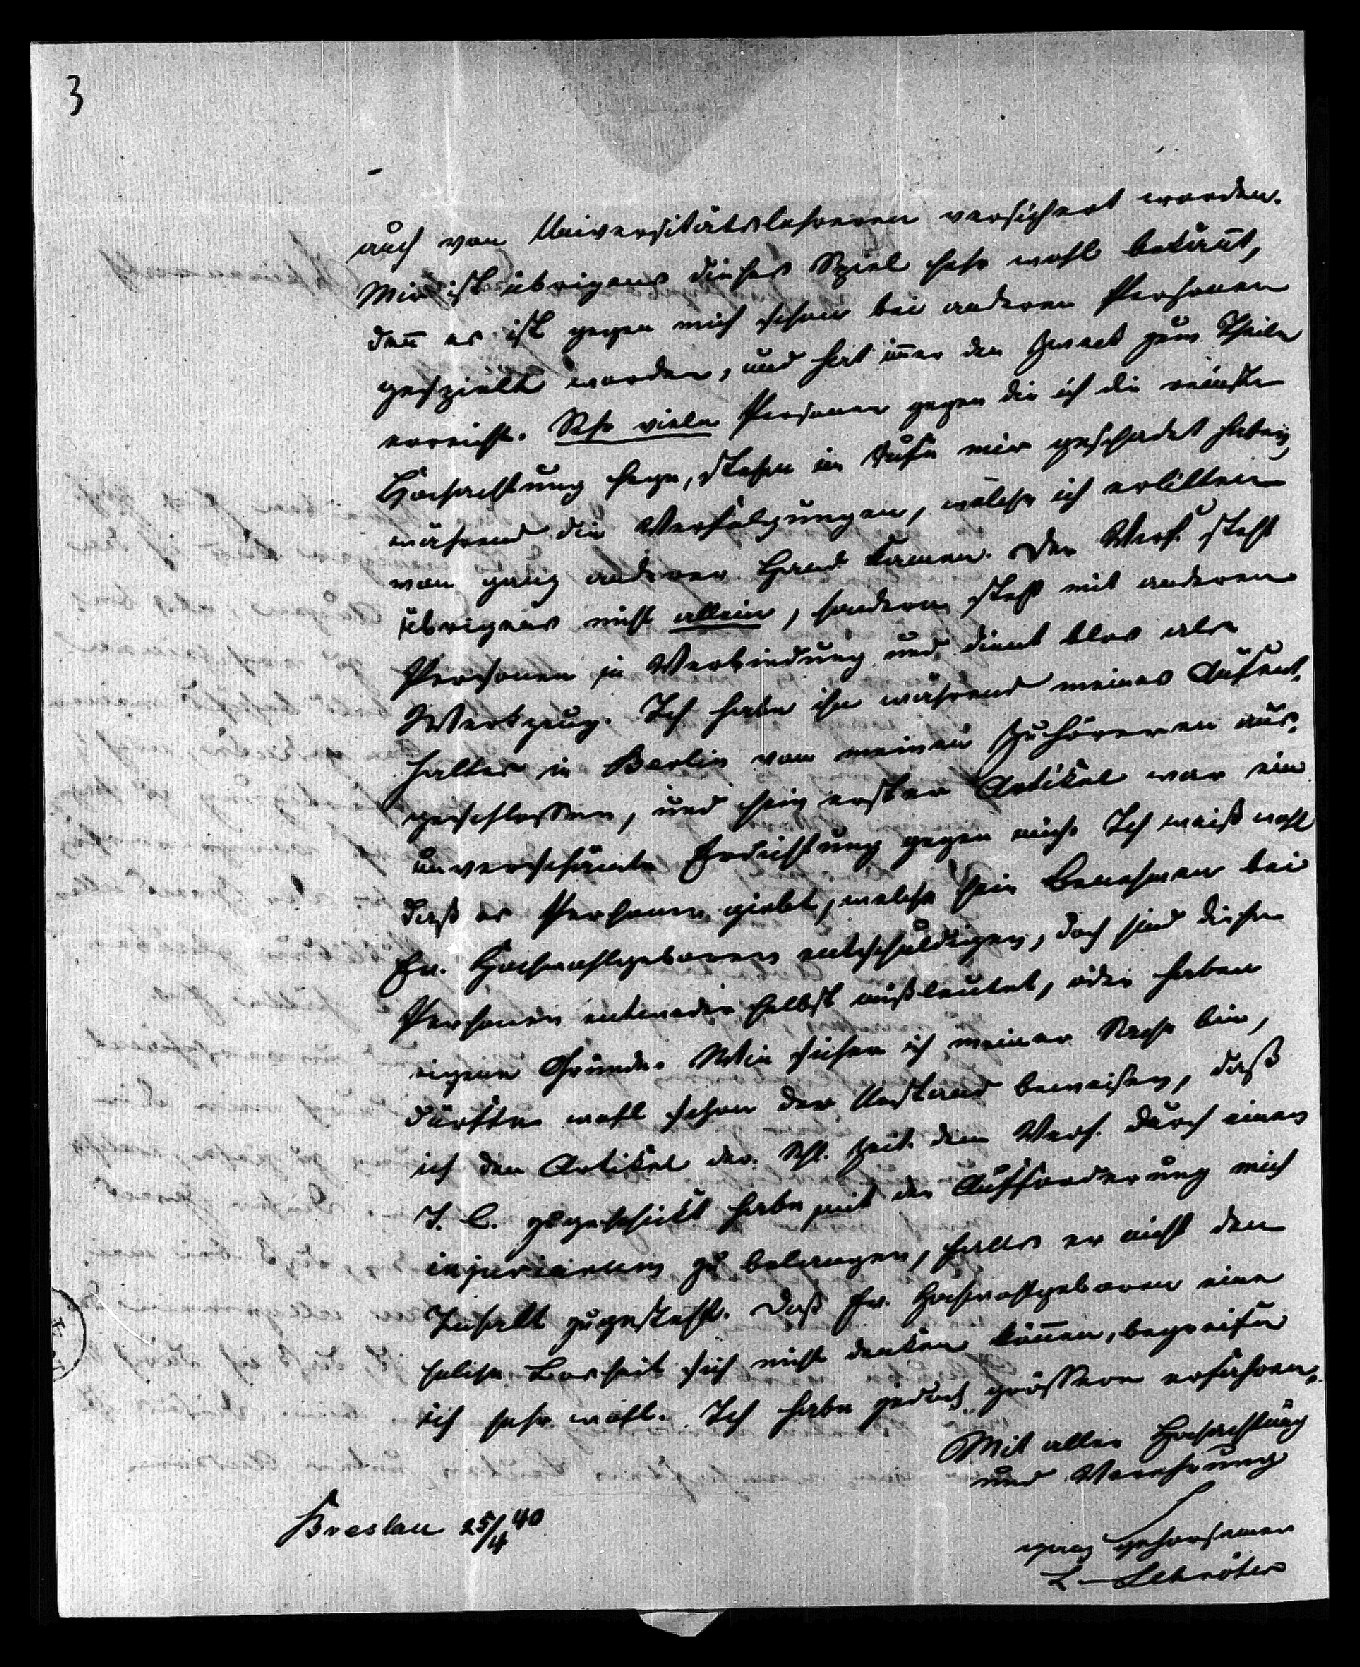 3
auch von Universitätslehreren versichert worden.
Mir ist übrigens dieses Spiel sehr wohl bekañt,
deñ es ist gegen mich schon bei anderen Personen
gespielt worden, und hat im̃er den Zweck zum Theile
erreicht. Sehr viele Personen gegen die ich die reinste
Hochachtung hege, stehen im Rufe mir geschadet haben,
während die Verfolgungen, welche ich erlitten
von ganz anderer Hand kamen. Der Verf. steht
übrigens nicht allein, sondern steht mit anderen
Personen in Verbindung und dient blos als
Werkzeug. Ich habe ihn während meines Aufent-
haltes in Berlin von meinen Zuhöreren aus-
geschlossen, und sein erster Artikel war eine
unverschämte Erdichtung gegen mich. Ich weiß wohl
daß es Personen giebt, welche sein Benehmen bei
Ew. Hochwohlgeboren entschuldigen, doch sind diese
Personen entweder selbst mißleutet, oder haben
eigene Gründe. Wie sicher ich meiner Sache bin,
dürfte wohl schon der Umstand beweisen, daß
ich den Artikel der Schl. Zeit. dem Verf. durch einen
J. C. zugeschickt habe mit der Aufforderung mich
injuriarum zu belangen, falls er nicht den
Inhalt zugesteht. Daß Ew. Hochwohlgeboren eine
solche Bosheit sich nicht denken köñen, begreife
ich sehr wohl. Ich habe jedoch größere erfahren.
Mit aller Hochachtung
und Verehrung
ganz gehorsamer
Breslau 25/4 40